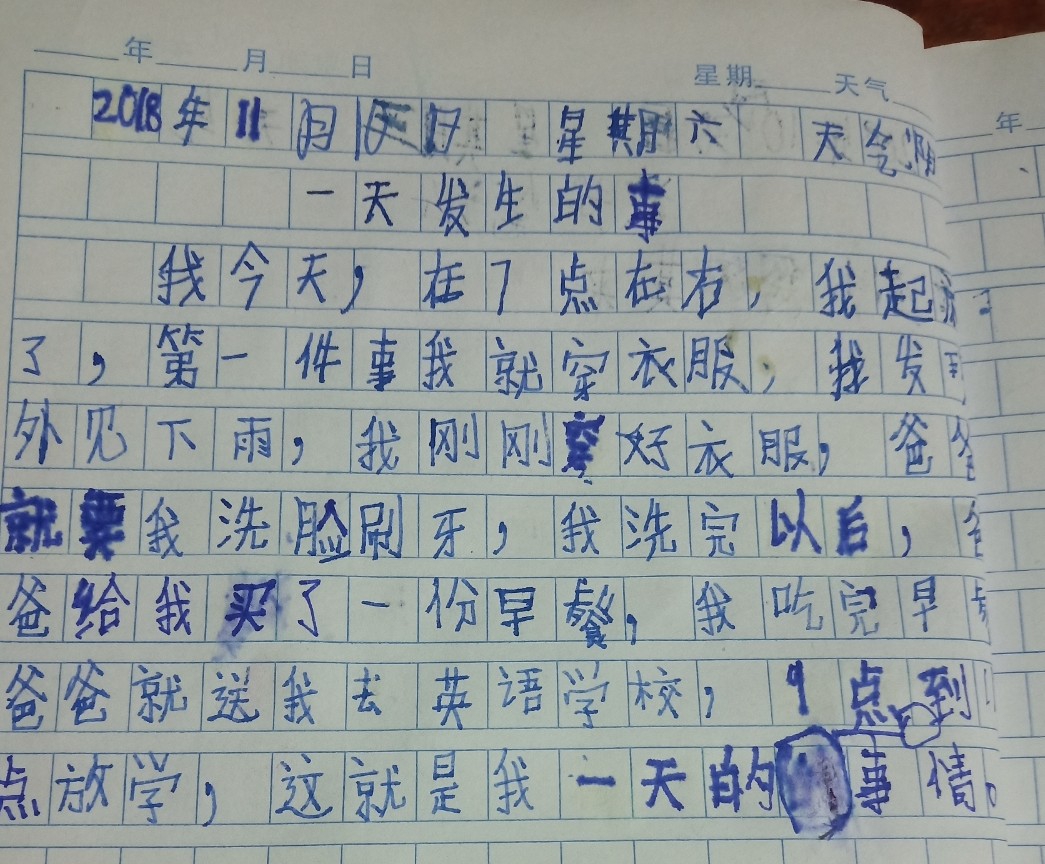 年 月 日 星期 天气
2018年11月 日 星期六 天气阴
一天发生的事
我今天，在7点在右，我起
了，第一件事我就穿衣服，我发
外见下雨，我刚刚穿好衣服，爸爸
就要我洗脸刷牙，我洗完以后，爸
爸给我买了一份早餐，我吃完早
爸爸就送我去英语学校，9点到
点放学，这就是我一天的事情。
年